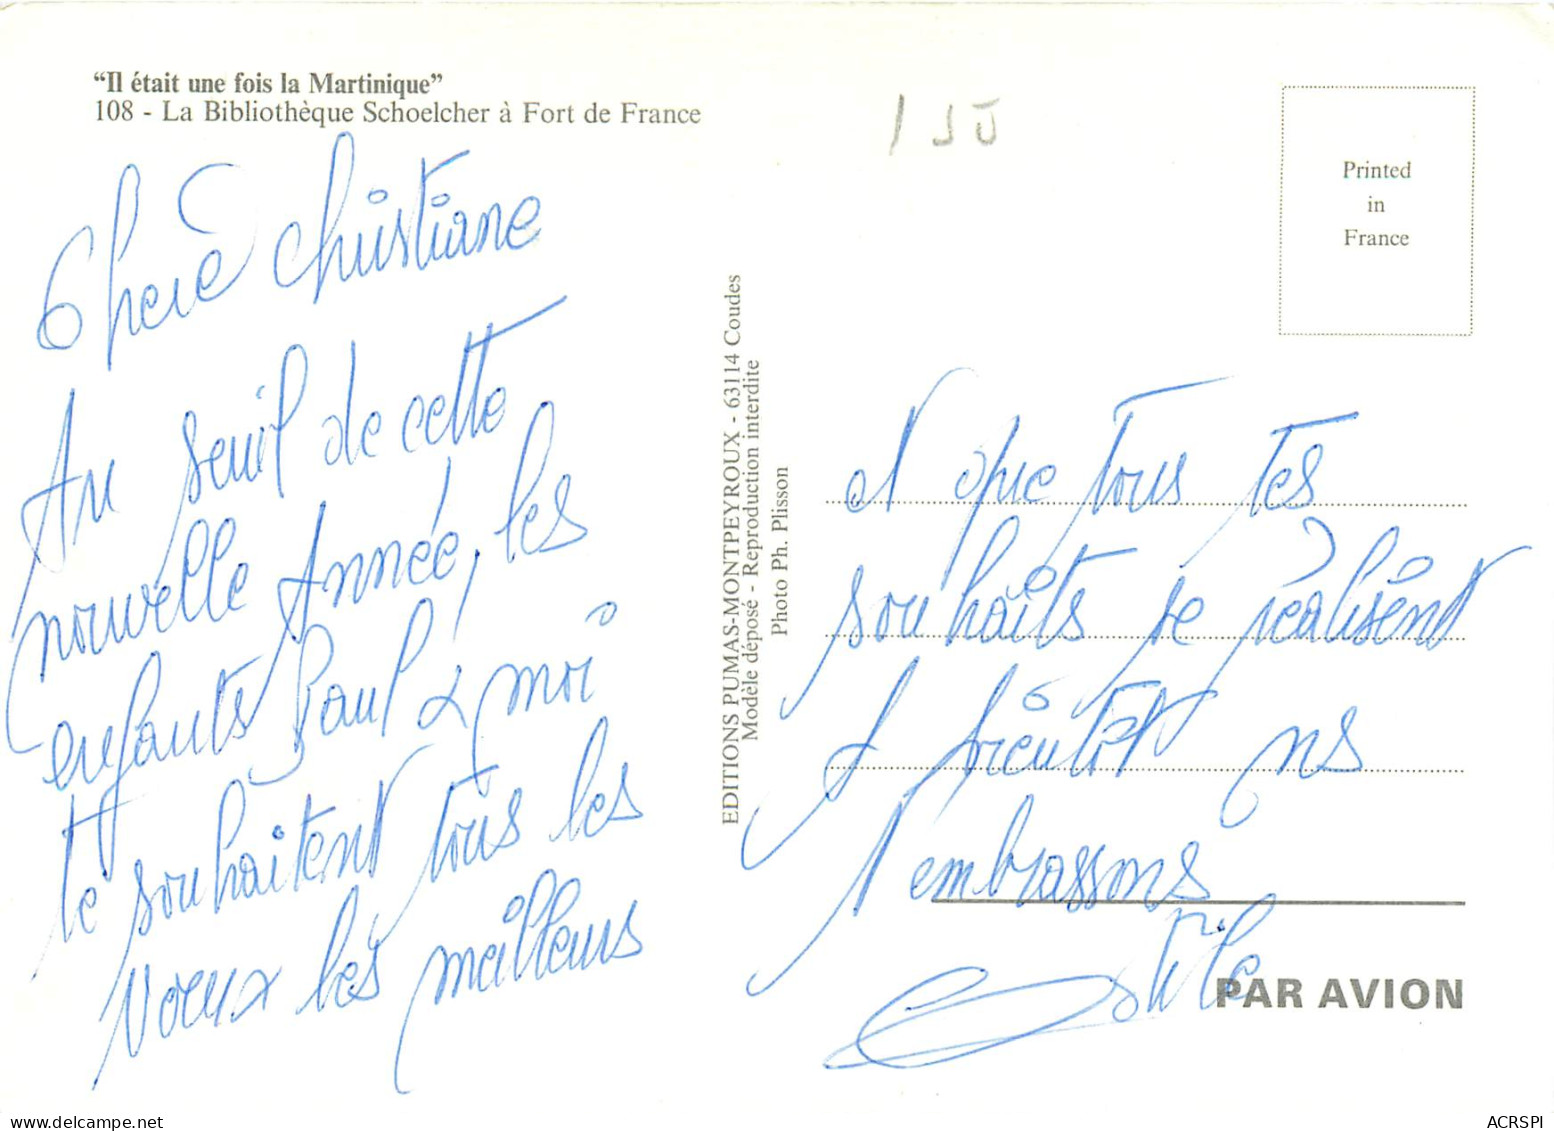 "Il était une fois la Martinique"
108 - La Bibliothèque Schoelcher à Fort de France
Chère Christiane
Au seuil de cette
nouvelle Année, les
enfants Paul & moi
te souhaitent tous les
Voeux les meilleurs
EDITIONS PUMAS-MONTPEYROUX - 63114 Coudes
Modèle déposé - Reproduction interdite
Photo Ph. Plisson
Printed
in
France
et que tous tes
souhaits se réalisent
A bientôt ns
t'embrassons
PAR AVION
ACRSPI